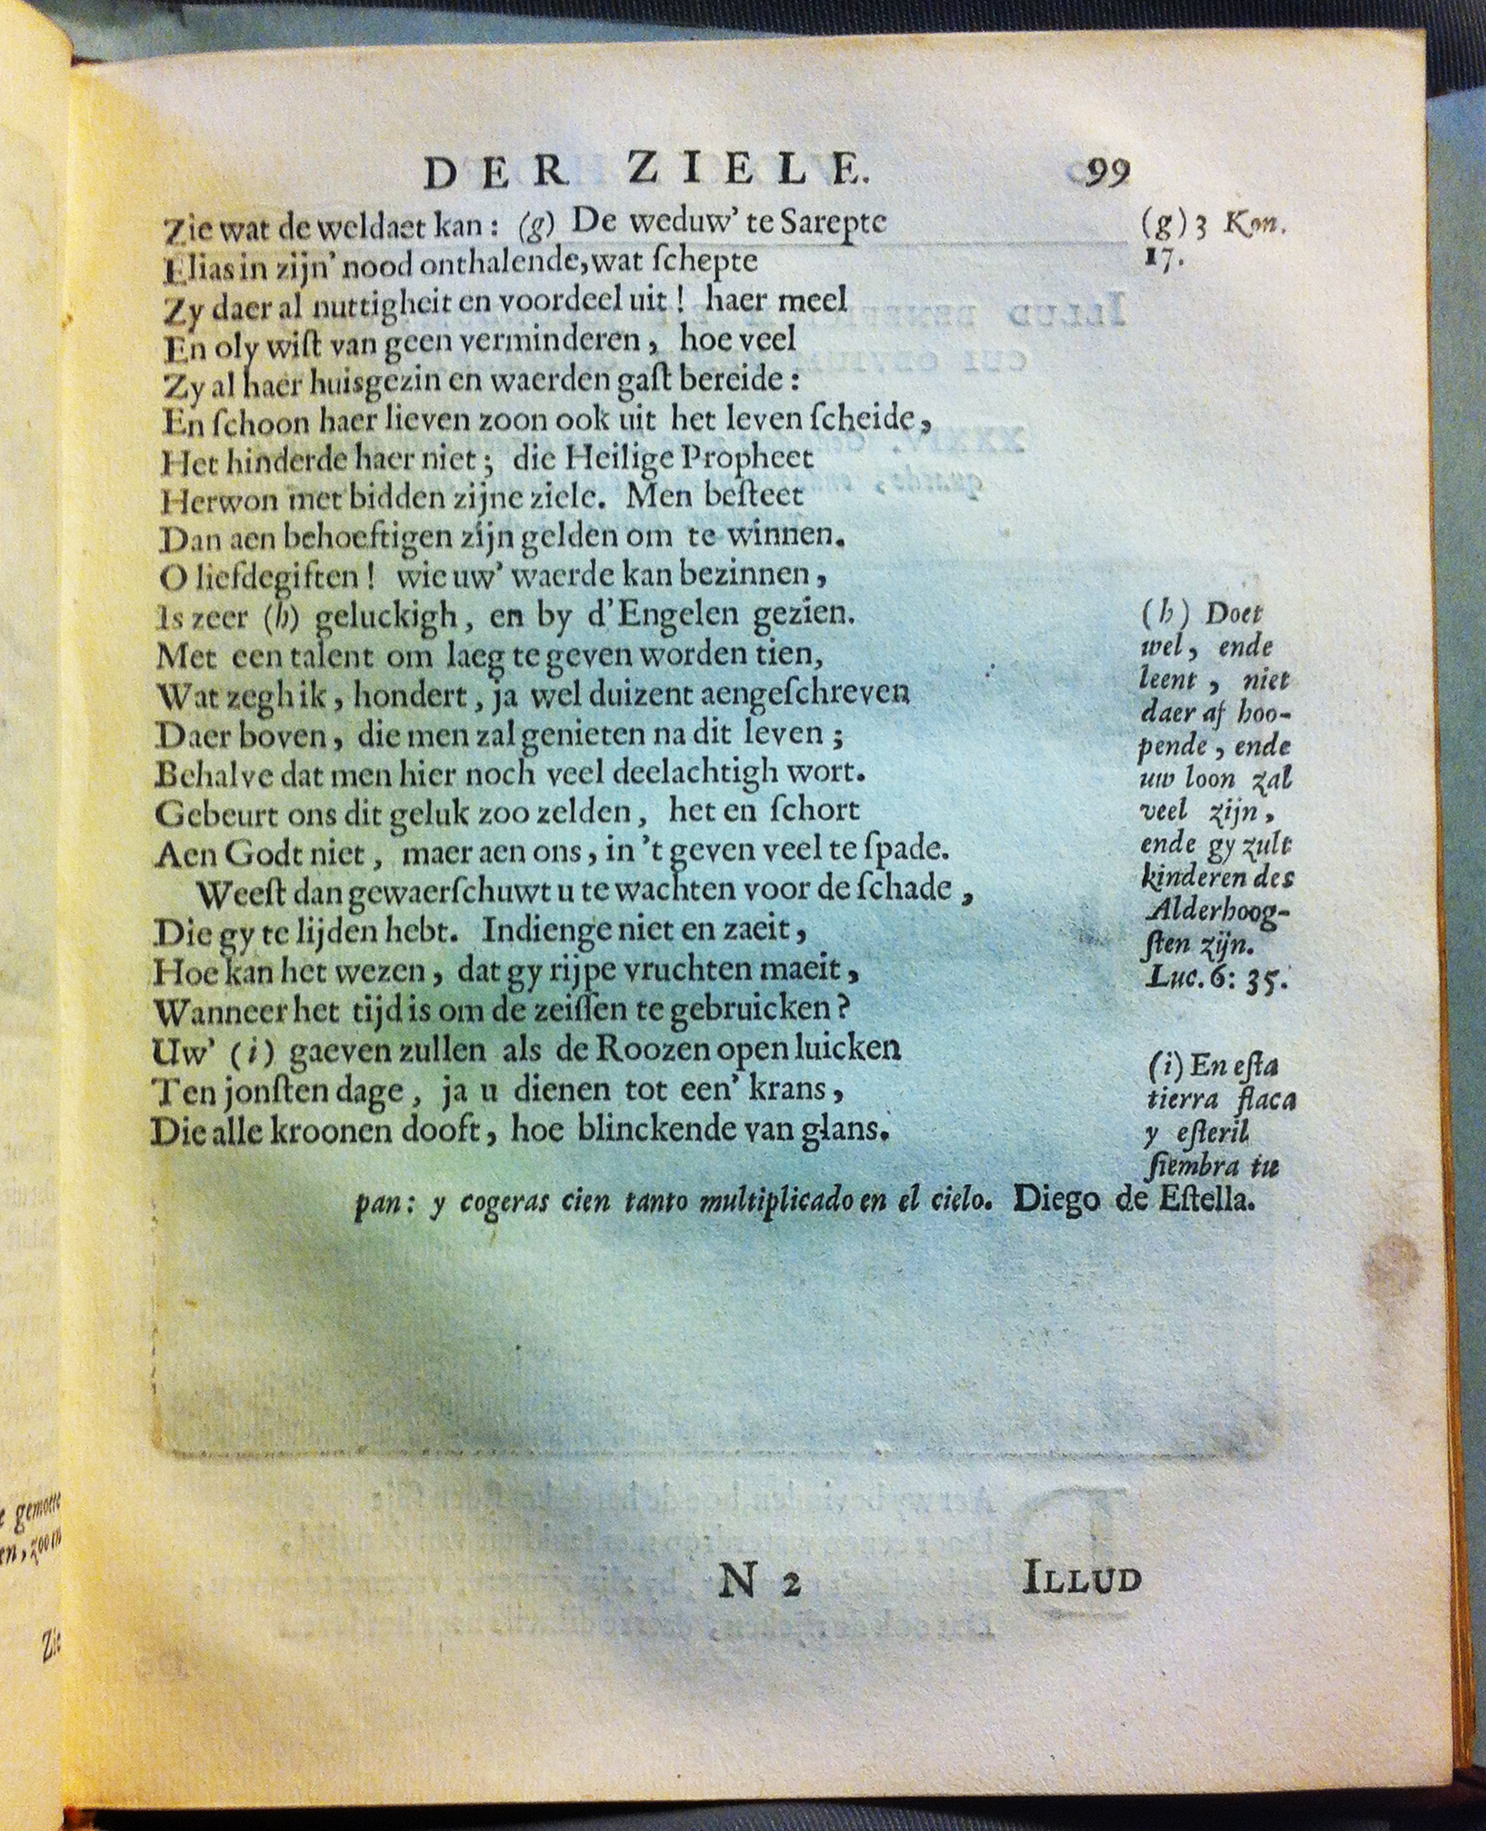 DER ZIELE. 99
Zie wat de weldaet kan: (g) De weduw’ te Sarepte
Elias in zijn’ nood onthalende, wat ſchepte
Zy daer al nuttigheit en voordeel uit! haer meel
En oly wiſt van geen verminderen, hoe veel
Zy al haer huisgezin en waerden gaſt bereide:
En ſchoon haer lieven zoon ook uit het leven ſcheide,
Het hinderde haer niet; die Heilige Propheet
Herwon met bidden zijne ziele. Men beſteet
Dan aen behoeftigen zijn gelden om te winnen.
O liefdegiften! wie uw’ waerde kan bezinnen,
Is zeer (h) geluckigh, en by d’Engelen gezien.
Met een talent om laeg te geven worden tien,
Wat zegh ik, hondert, ja wel duizent aengeſchreven
Daer boven, die men zal genieten na dit leven;
Behalve dat men hier noch veel deelachtigh wort.
Gebeurt ons dit geluk zoo zelden, het en ſchort
Aen Godt niet, maer aen ons, in ’t geven veel te ſpade.
Weeſt dan gewaerſchuwt u te wachten voor de ſchade,
Die gy te lijden hebt. Indien ge niet en zaeit,
Hoe kan het wezen, dat gy rijpe vruchten maeit,
Wanneer het tijd is om de zeiſſen te gebruicken?
Uw’ (i) gaeven zullen als de Roozen open luicken
Ten jonſten dage, ja u dienen tot een’ krans,
Die alle kroonen dooft, hoe blinckende van glans.
(g) 3 Kon.
17.
(h) Doet
wel, ende
leent, niet
daer af hoo-
pende, ende
uw loon zal
veel zijn,
ende gy zult
kinderen des
Alderhoog-
ſten zijn.
Luc. 6: 35.
(i) En eſta
tierra flaca
y eſteril
ſiembra tu
pan: y cogeras cien tanto multiplicado en el cielo. Diego de Eſtella.
N 2 ILLUD
gemotte
en, zoo m
Zie